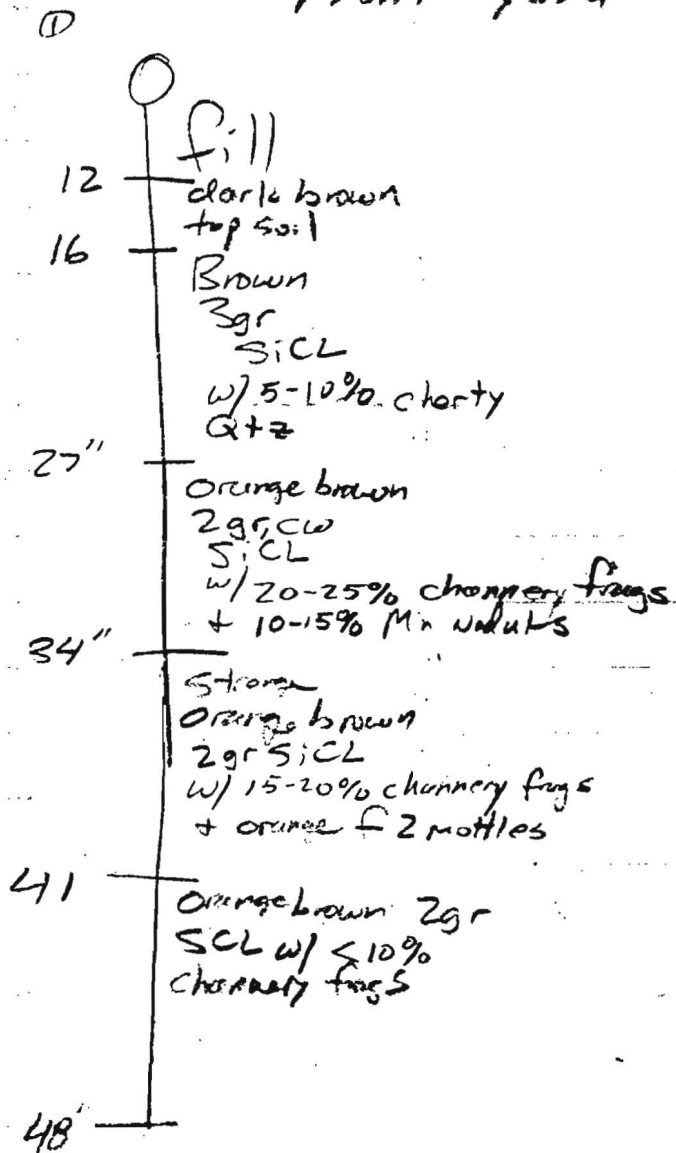 ①
fill
12
dark brown
top soil
16
Brown
3gr
SiCL
w/ 5-10% cherty
Qtz
27"
Orange brown
2gr, cw
SiCL
w/ 20-25% channery frags
+ 10-15% Mn
34"
Strong
Orange brown
2gr SiCL
w/ 15-20% channery frags
+ orange f 2 mottles
41
Orange brown 2gr
SCL w/ ≤10%
channery frags
48"